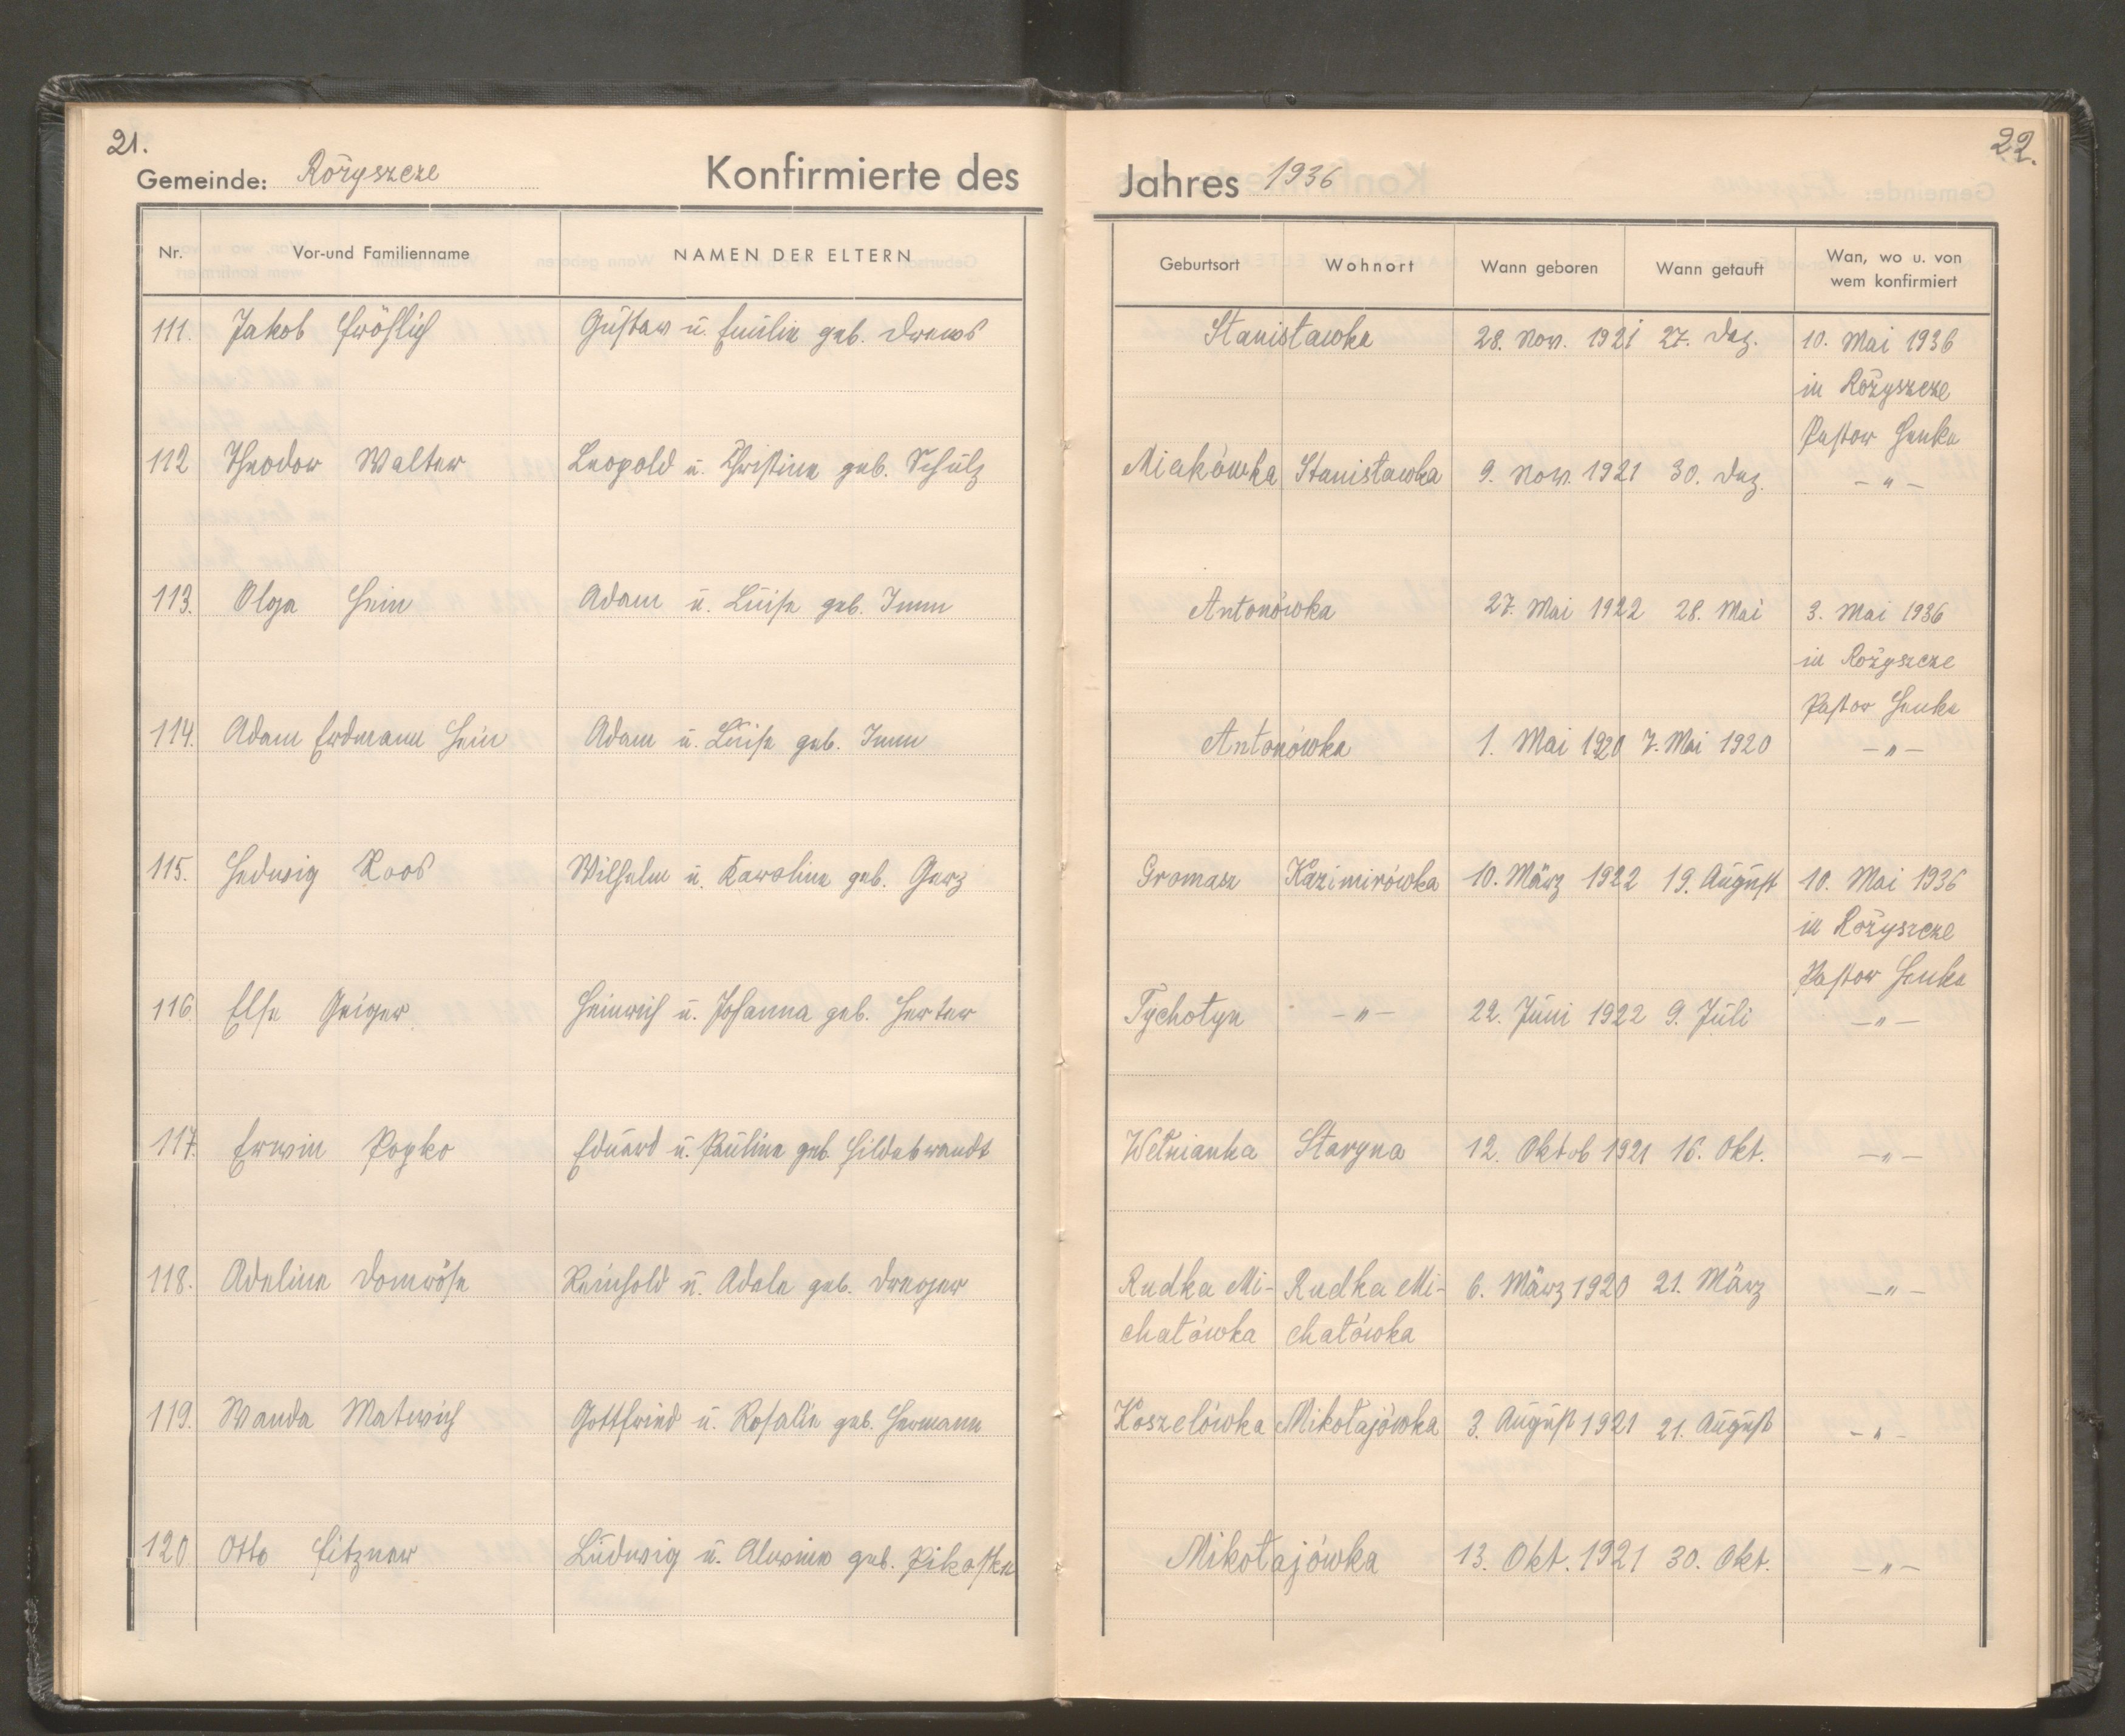 21.
Gemeinde: Rożyszcze Konfirmierte des
Nr. Vor-und Familienname NAMEN DER ELTERN
111. Jakob Fröhlich Gustaw u. Emilie geb. Drews
112 Theodor Walter Leopold u. Christine geb. Schulz
113. Olga Hein Adam u. Luise geb. Imm
114. Adam Erdmann Hein Adam u. Luise geb. Imm
115. Hedwig Roos Wilhelm u. Karoline geb. Gerz
116. Else Geiger Heinrich u. Johanna geb. Herter
117. Erwin Popko Eduard u. Pauline geb. Hildebrandt
118. Adeline Domröse Reinhold u. Adele geb. Dreger
119. Wanda Matwich Gottfried u. Rosalie geb. Hermann
120 Otto Fitzner Ludwig u. Alwine geb. Pikaske
22.
Jahres 1936
Geburtsort Wohnort Wann geboren Wann getauft Wan, wo u. von
wem konfirmiert
Stanisławka 28. Nov. 1921 27. Dez. 10. Mai 1936
in Rożyszcze
Pastor Henke
Miaków​ka Stanisławka 9. Nov. 1921 30. Dez. – " –
Antonówka 27. Mai 1922 28. Mai 3. Mai 1936
in Rożyszcze
Pastor Henke
Antonówka 1. Mai 1920 7. Mai 1920 – " –
Gromasz Kazimirówka 10. März 1922 19. August 10. Mai 1936
in Rożyszcze
Pastor Henke
Tychotyn – " – 22. Juni 1922 9. Juli – " –
Wełnianka Staryna 12. Oktob 1921 16. Okt. – " –
Rudka Mi- Rudka Mi- 6. März 1920 21. März – " –
chałówka chałówka
Koszelówka Mikołajówka 3. August 1921 21. August – " –
Mikołajówka 13. Okt. 1921 30. Okt. – " –